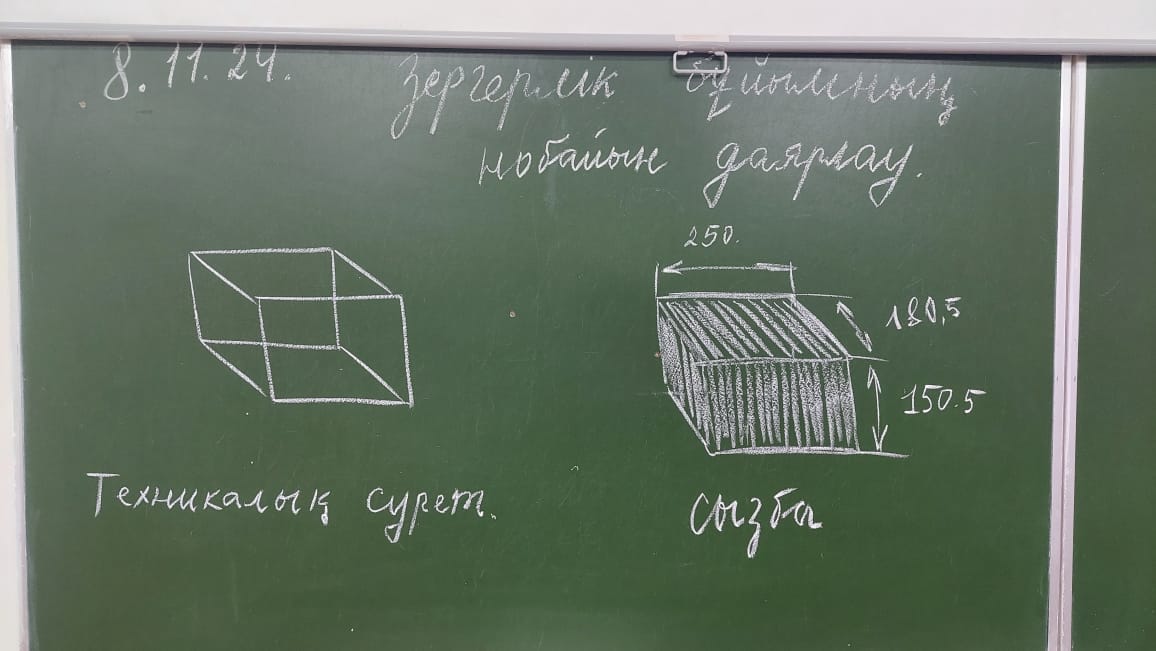 8.11.24.
Зергерлік бұйымның
нобайын даярлау.
250.
180,5
150.5
Техникалық сурет.
сызба